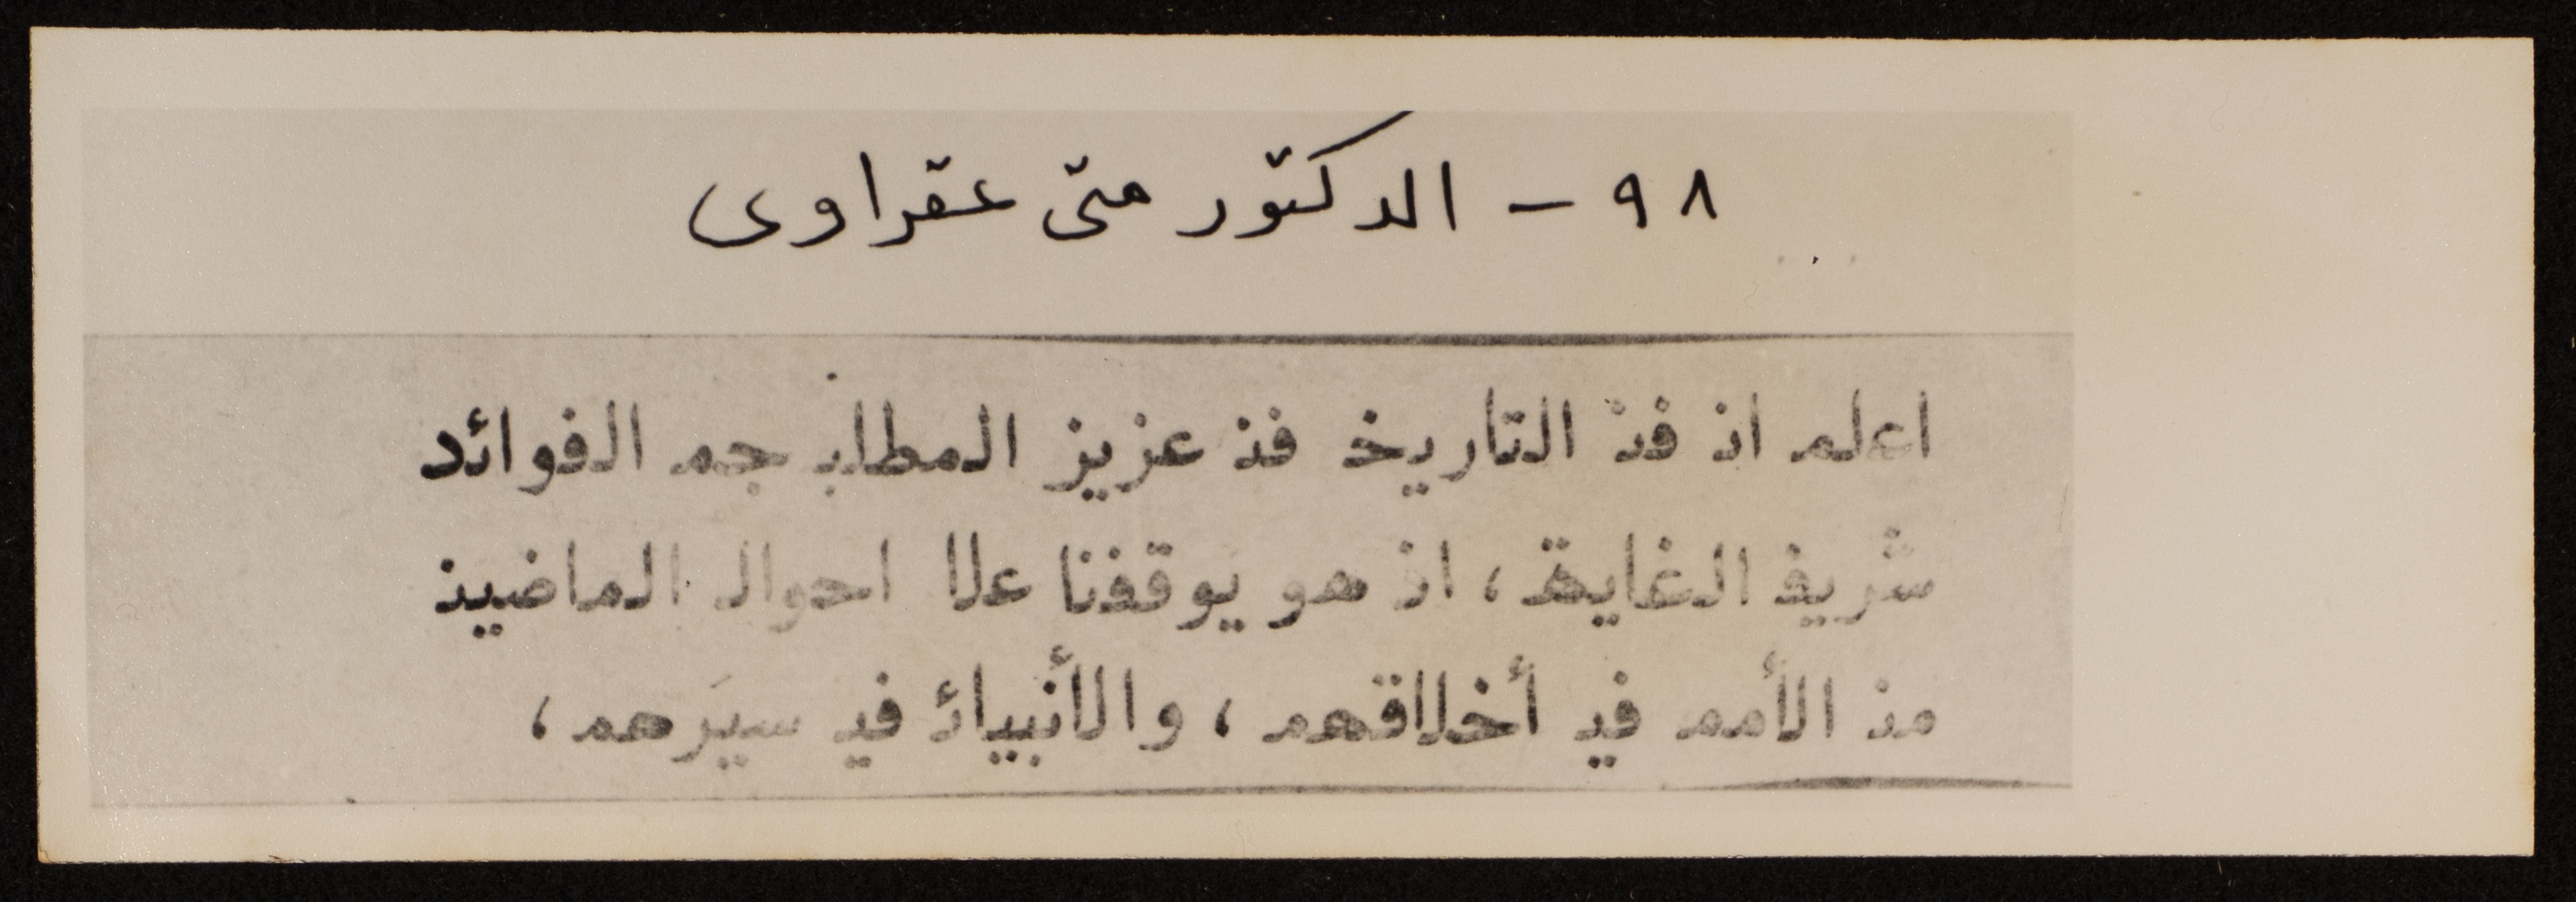 ٩٨ - الدكتور متى عقراوى
اعلم ان فن التاريخ فن عزيز المطلب جم الفوائد
شريف الغاية، اذ هو يوقفنا علا احوال الماضين
من الأمم في أخلاقهم، والأنبياء في سيَرهم،